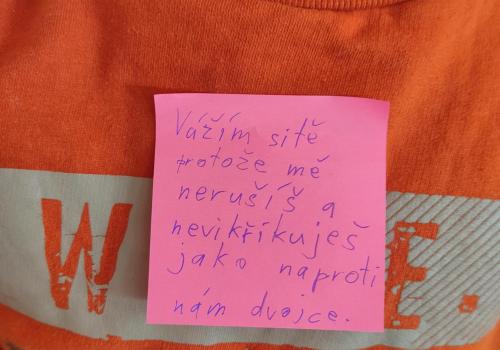 Vážím sitě
protože mě
nerušíš a
nevikřikuješ
jako naproti
nám dvojce.
W
E.